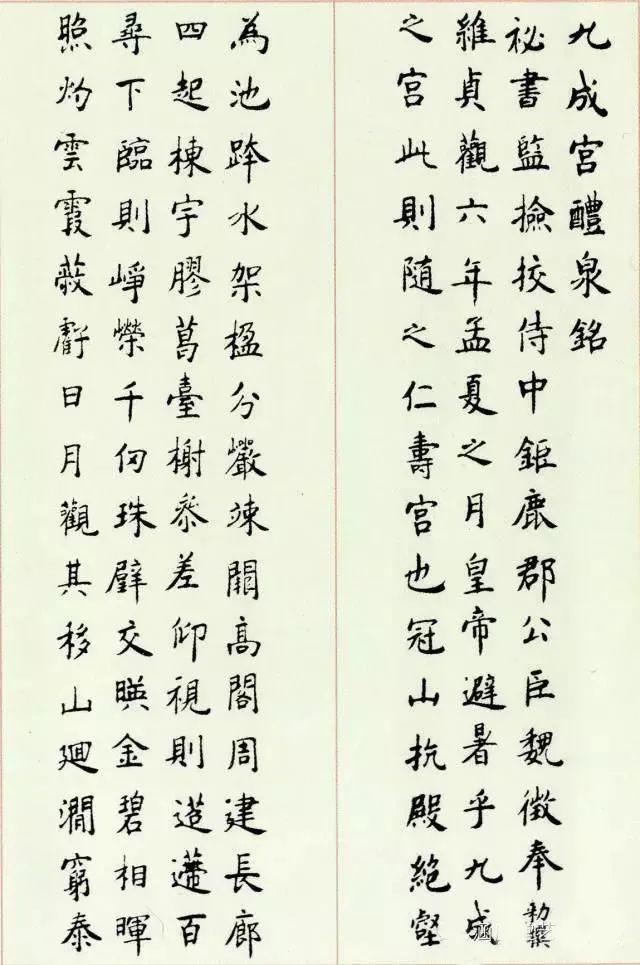 九成宮醴泉銘
祕書監撿挍侍中鉅鹿郡公臣魏徵奉勑撰
維貞觀六年孟夏之月皇帝避暑乎九成
之宮此則隨之仁壽宮也冠山抗殿絕壑
為池跨水架楹分巖竦闕高閣周建長廊
四起棟宇膠葛臺榭參差仰視則迢遰百
尋下臨則崢嶸千仞珠璧交暎金碧相暉
照灼雲霞蔽虧日月觀其移山迴澗窮泰